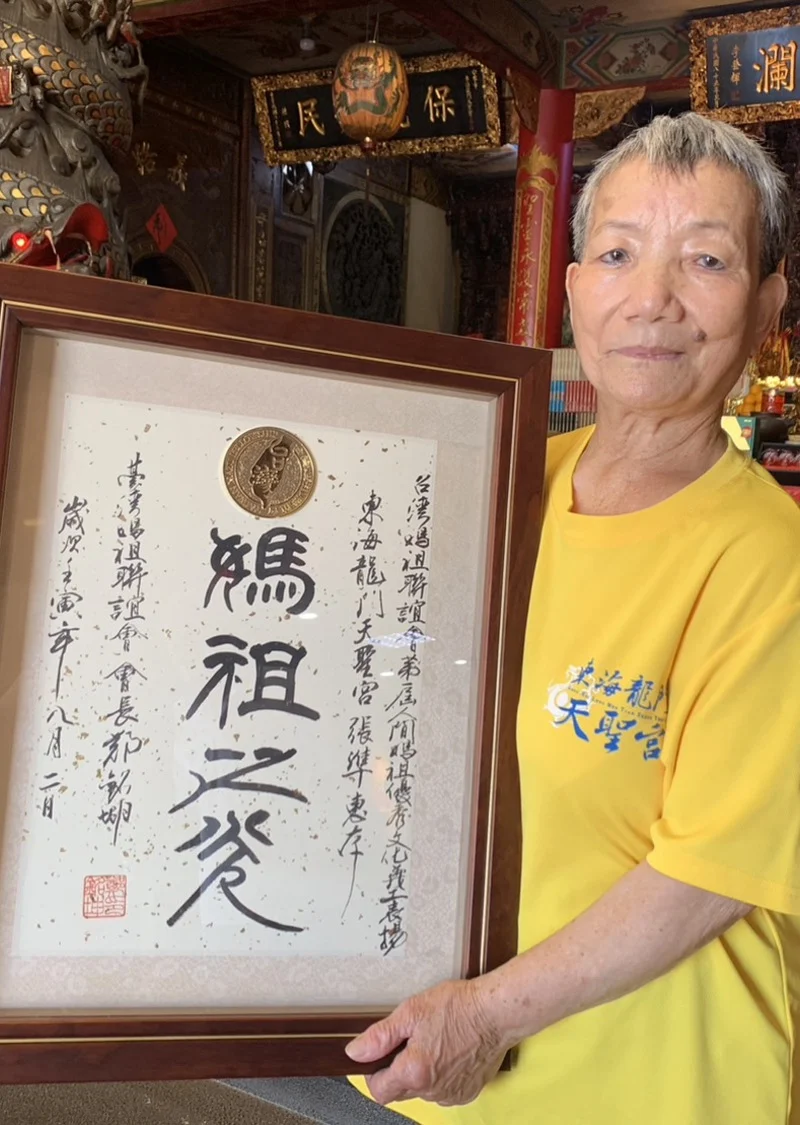 保
民
瀾
李登輝
台灣媽祖聯誼會第屆人間媽祖優秀文化義工表揚
東海龍門天聖宮 張準 惠存
媽祖之光
臺灣媽祖聯誼會 會長 鄭銘
歲次壬寅年八月二日
東海龍門
天聖宮